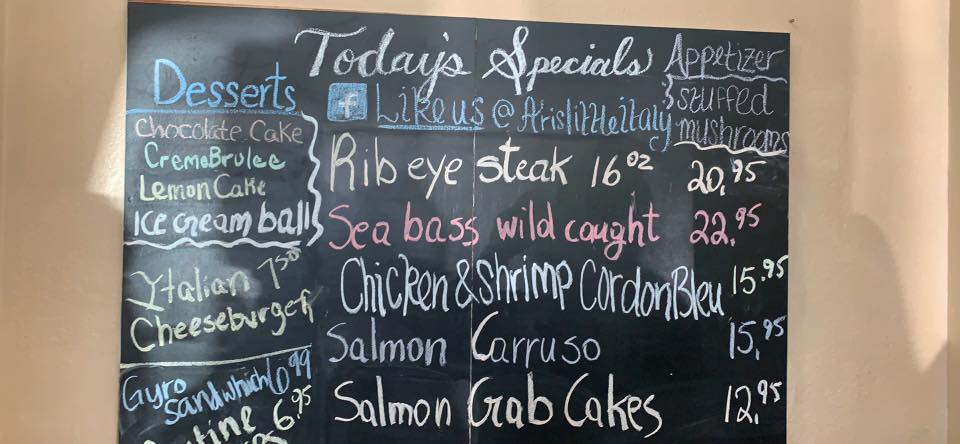 Today's Specials
f Like us @ Arislittleitaly
Rib eye steak 16oz 20.95
Sea bass wild caught 22.95
Chicken & shrimp Cordon Bleu 15.95
Salmon Carruso 15.95
Salmon Crab Cakes 12.95
Appetizer
stuffed
mushrooms
Desserts
Chocolate Cake
Creme Brulee
Lemon Cake
Ice cream ball
Ytalian 7.50
Cheeseburger
Gyro
sandwhich 6.99
6.95